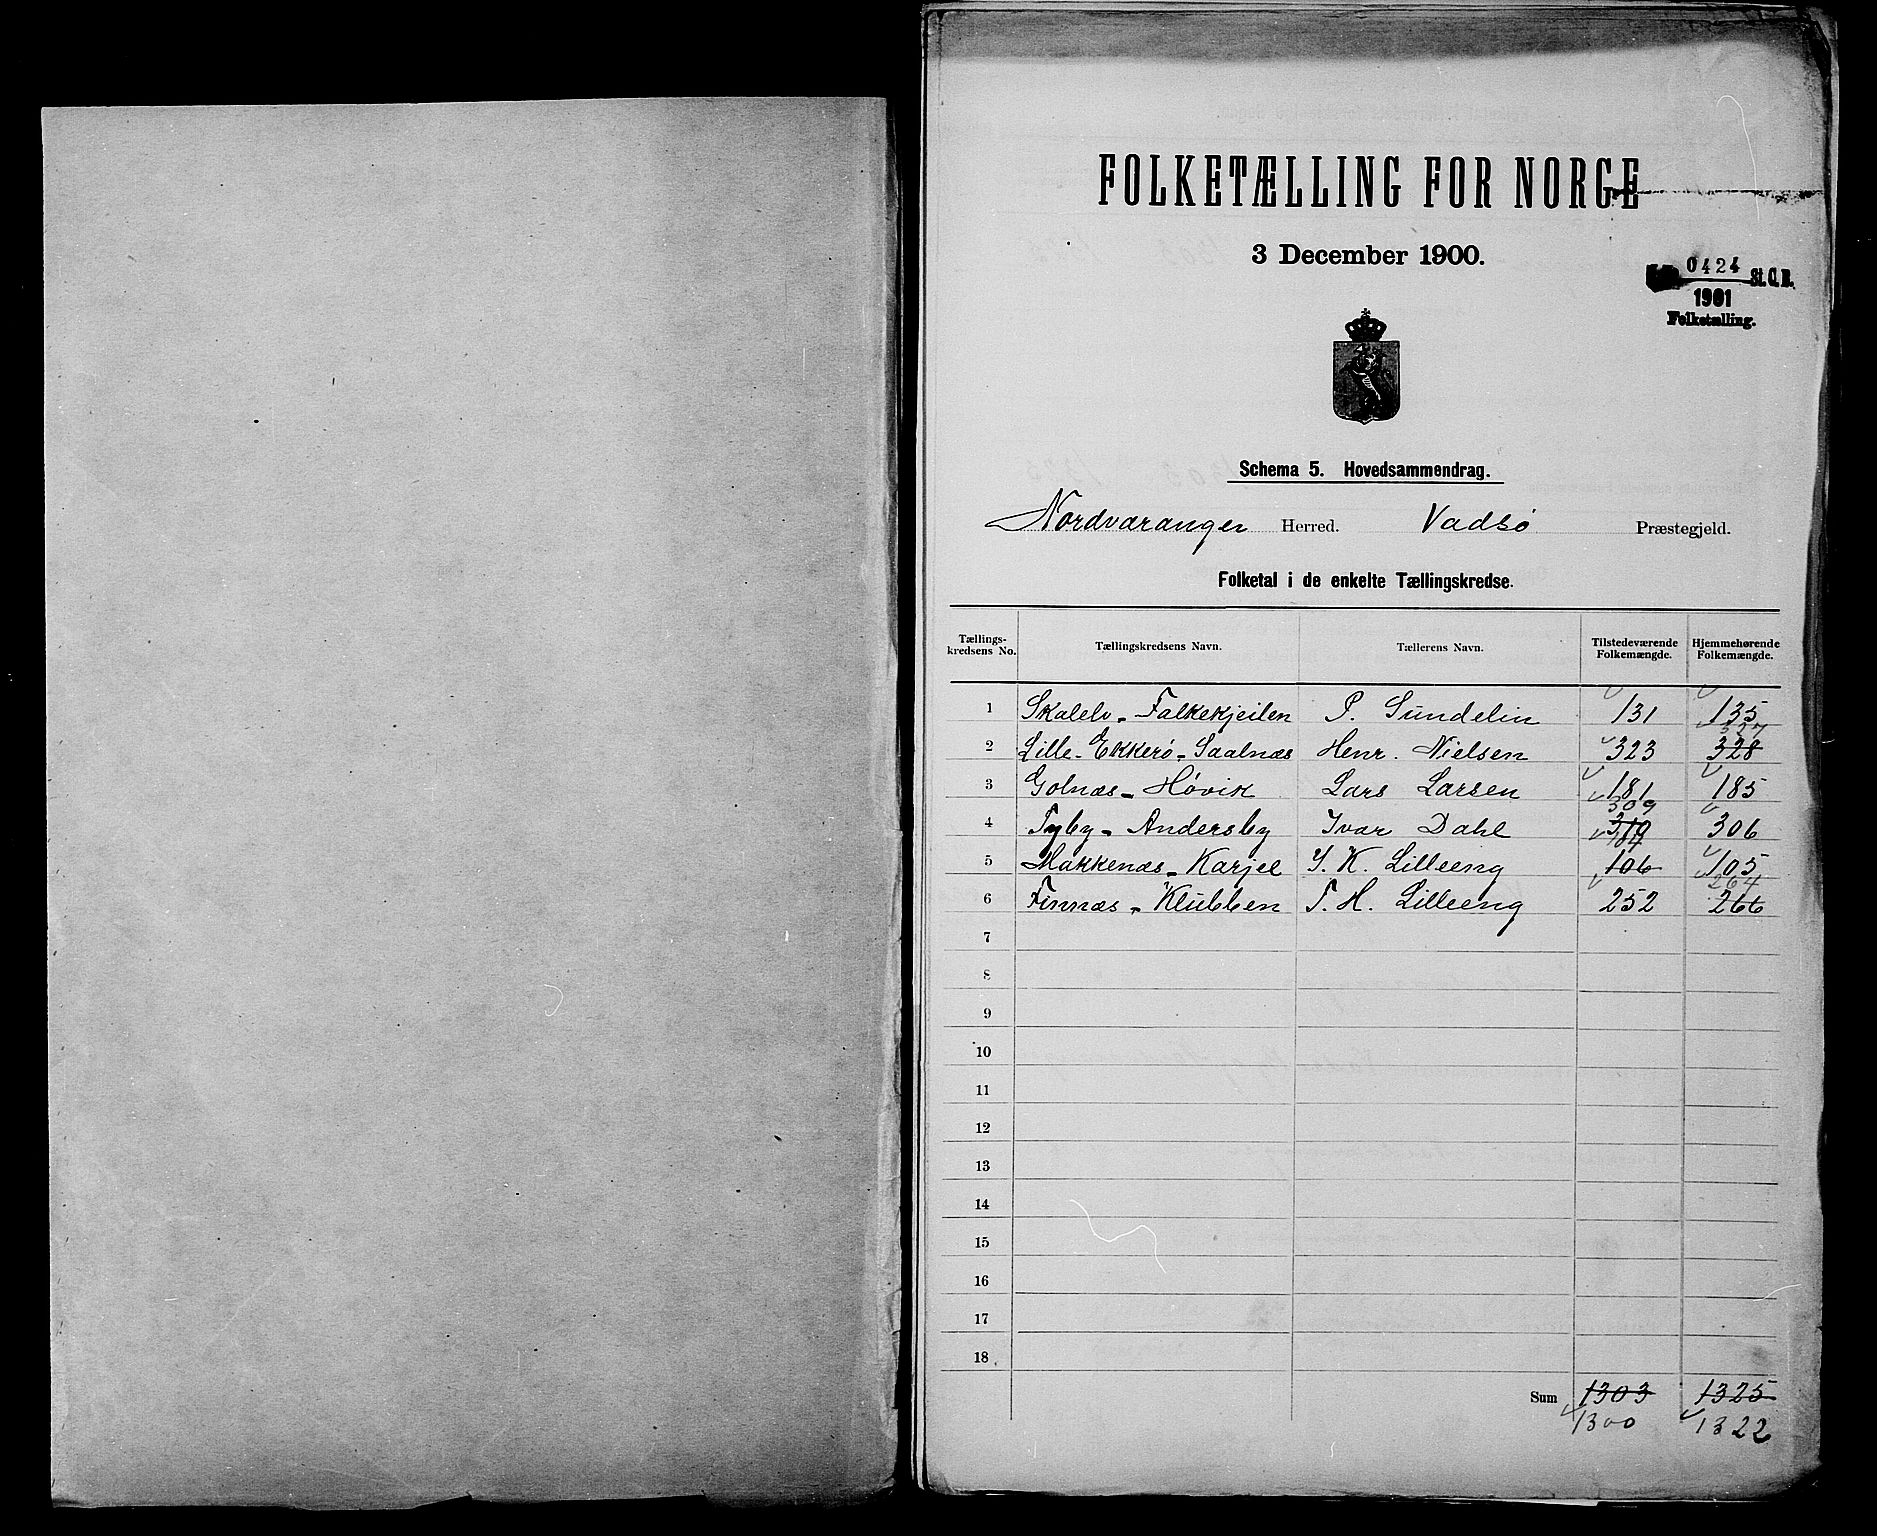 FOLKETÆLLING FOR NORGE
3 December 1900.
0424 St.C.B.
1901
Folketælling.
Schema 5. Hovedsammendrag.
Nordvaranger Herred. Vadsø Præstegjeld.
Folketal i de enkelte Tællingskredse.
Tællings-kredsens No. Tællingskredsens Navn. Tællerens Navn. Tilstedeværende Folkemængde. Hjemmehørende Folkemængde.
1 Skalelv - Falkekjeilen P. Sundelin 131 135
327
2 Lille-Ekkerø - Saalnæs Henr. Nielsen 323 328
3 Golnæs - Høvik Lars Larsen 181 185
309
4 Tyby - Andersby Ivar Dahl 310 306
104
5 Makkenæs - Karjel I. K. Lilleeng 106 105
264
6 Finnæs - Klubben T. H. Lilleeng 252 266
7
8
9
10
11
12
13
14
15
16
17
18
Sum 1303 1325
1300 1322